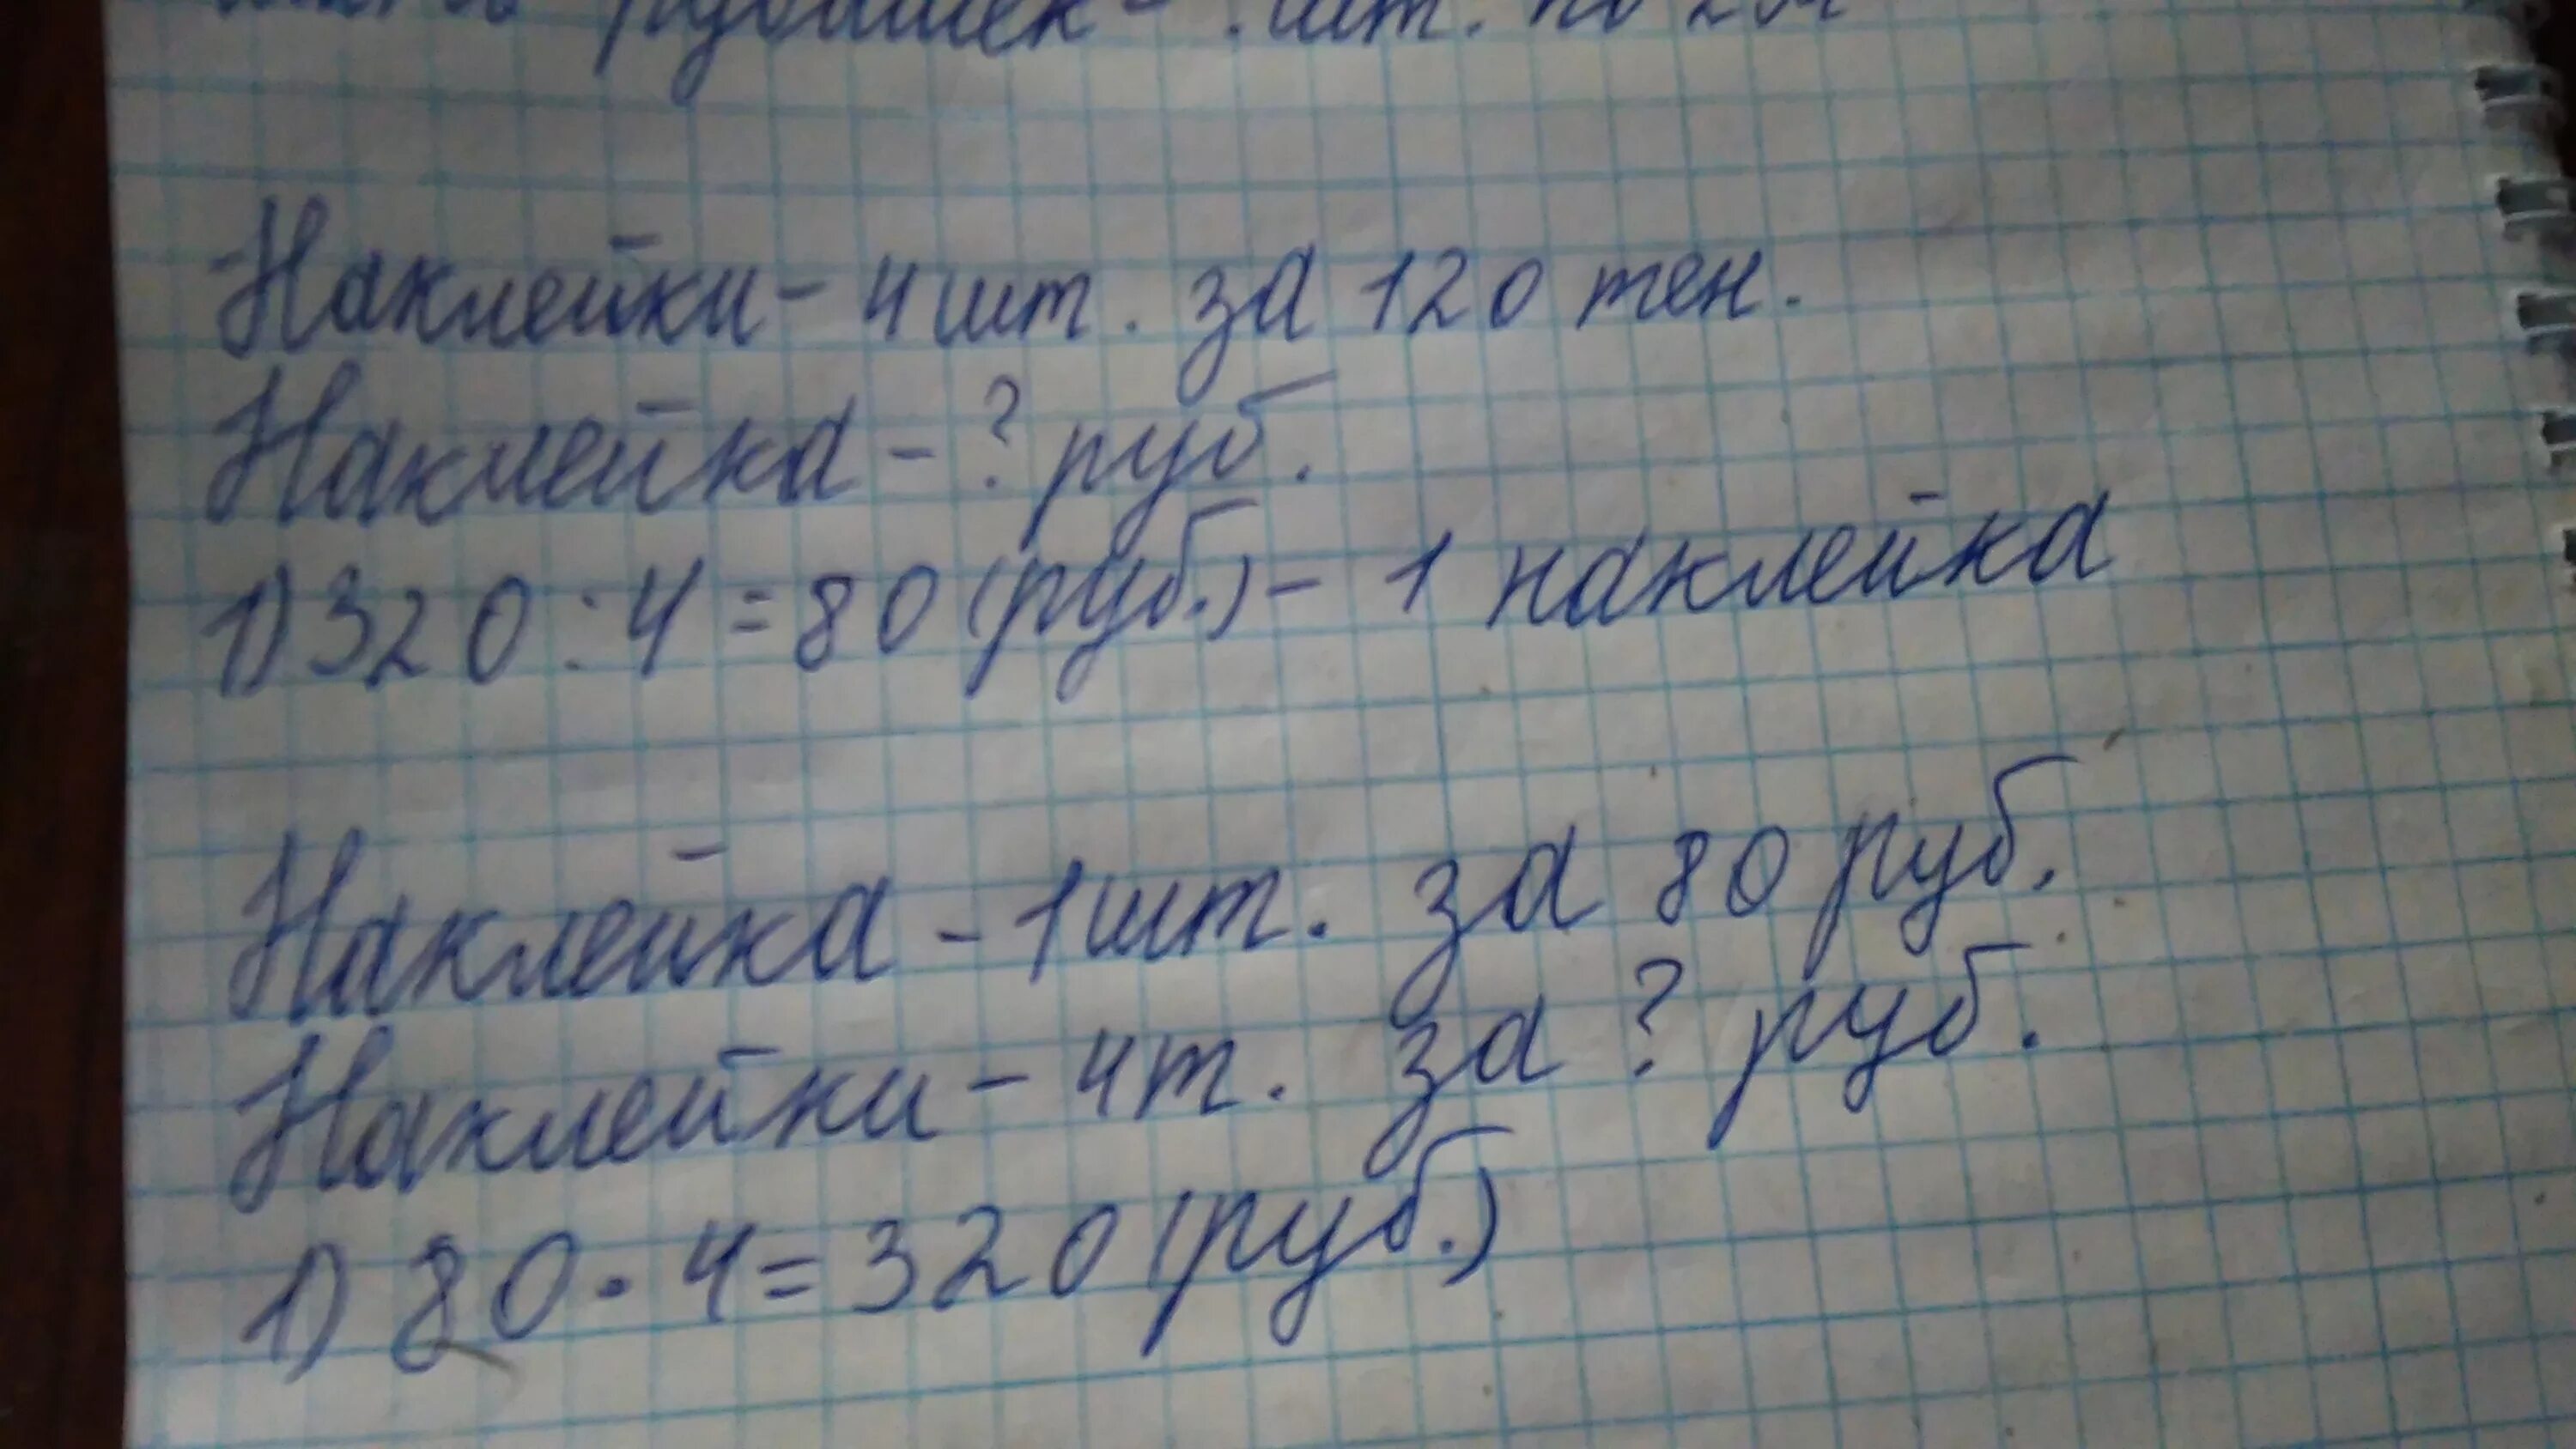 рубашек - . шт. по
Наклейки - 4 шт. за 120 тен.
Наклейка - ? руб.
1) 320 : 4 = 80 (руб.) - 1 наклейка
Наклейка - 1 шт. за 80 руб.
Наклейки - 4 т. за ? руб.
1) 80 · 4 = 320 (руб.)